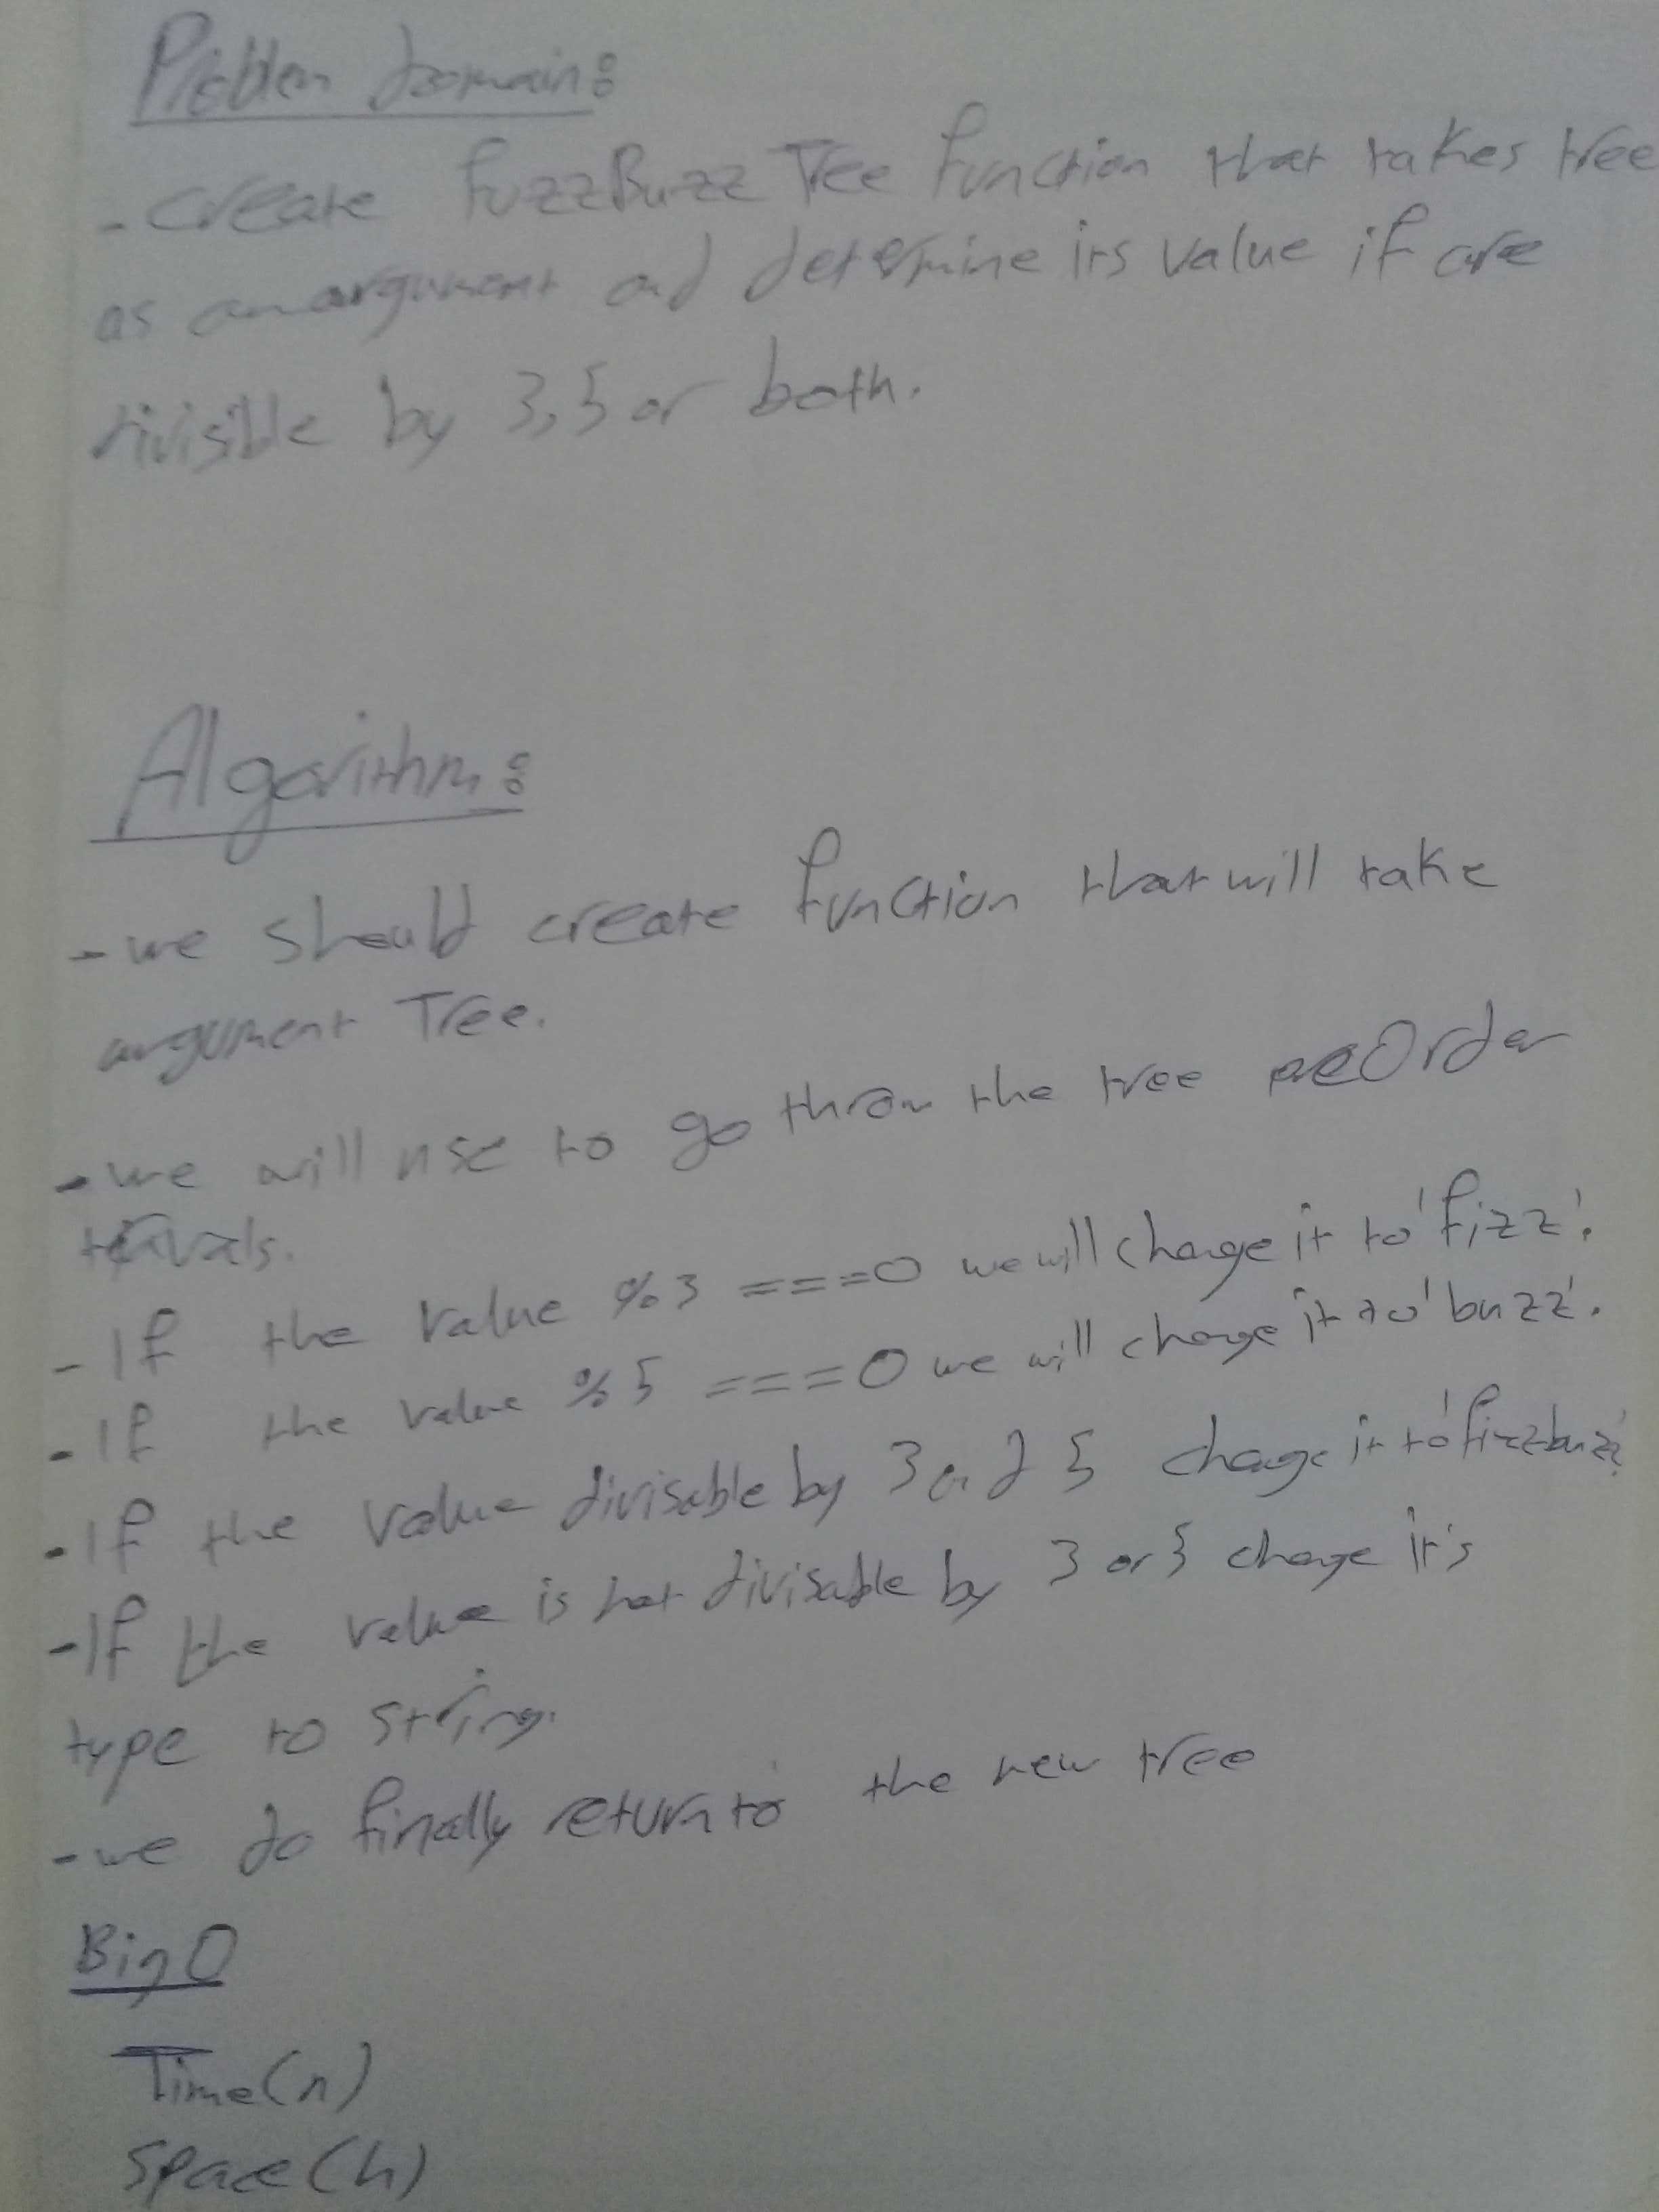 Problem domain:
- create FuzzBuzzTree function that takes tree
as an argument and determine its value if are
divisible by 3,5 or both.
Algorithm:
- we should create function that will take
argument Tree.
- we will use to go throw the tree preOrder
- If the value %3 ===0 we will change it to 'fizz'.
- If the value %5 ===0 we will change it to 'buzz'.
- If the value divisable by 3 and 5 change it to 'fizzbuzz'
- If the value is not divisable by 3 or 5 change it's
type to string.
- we do finally return to the new tree
Big O
Time(n)
Space(h)